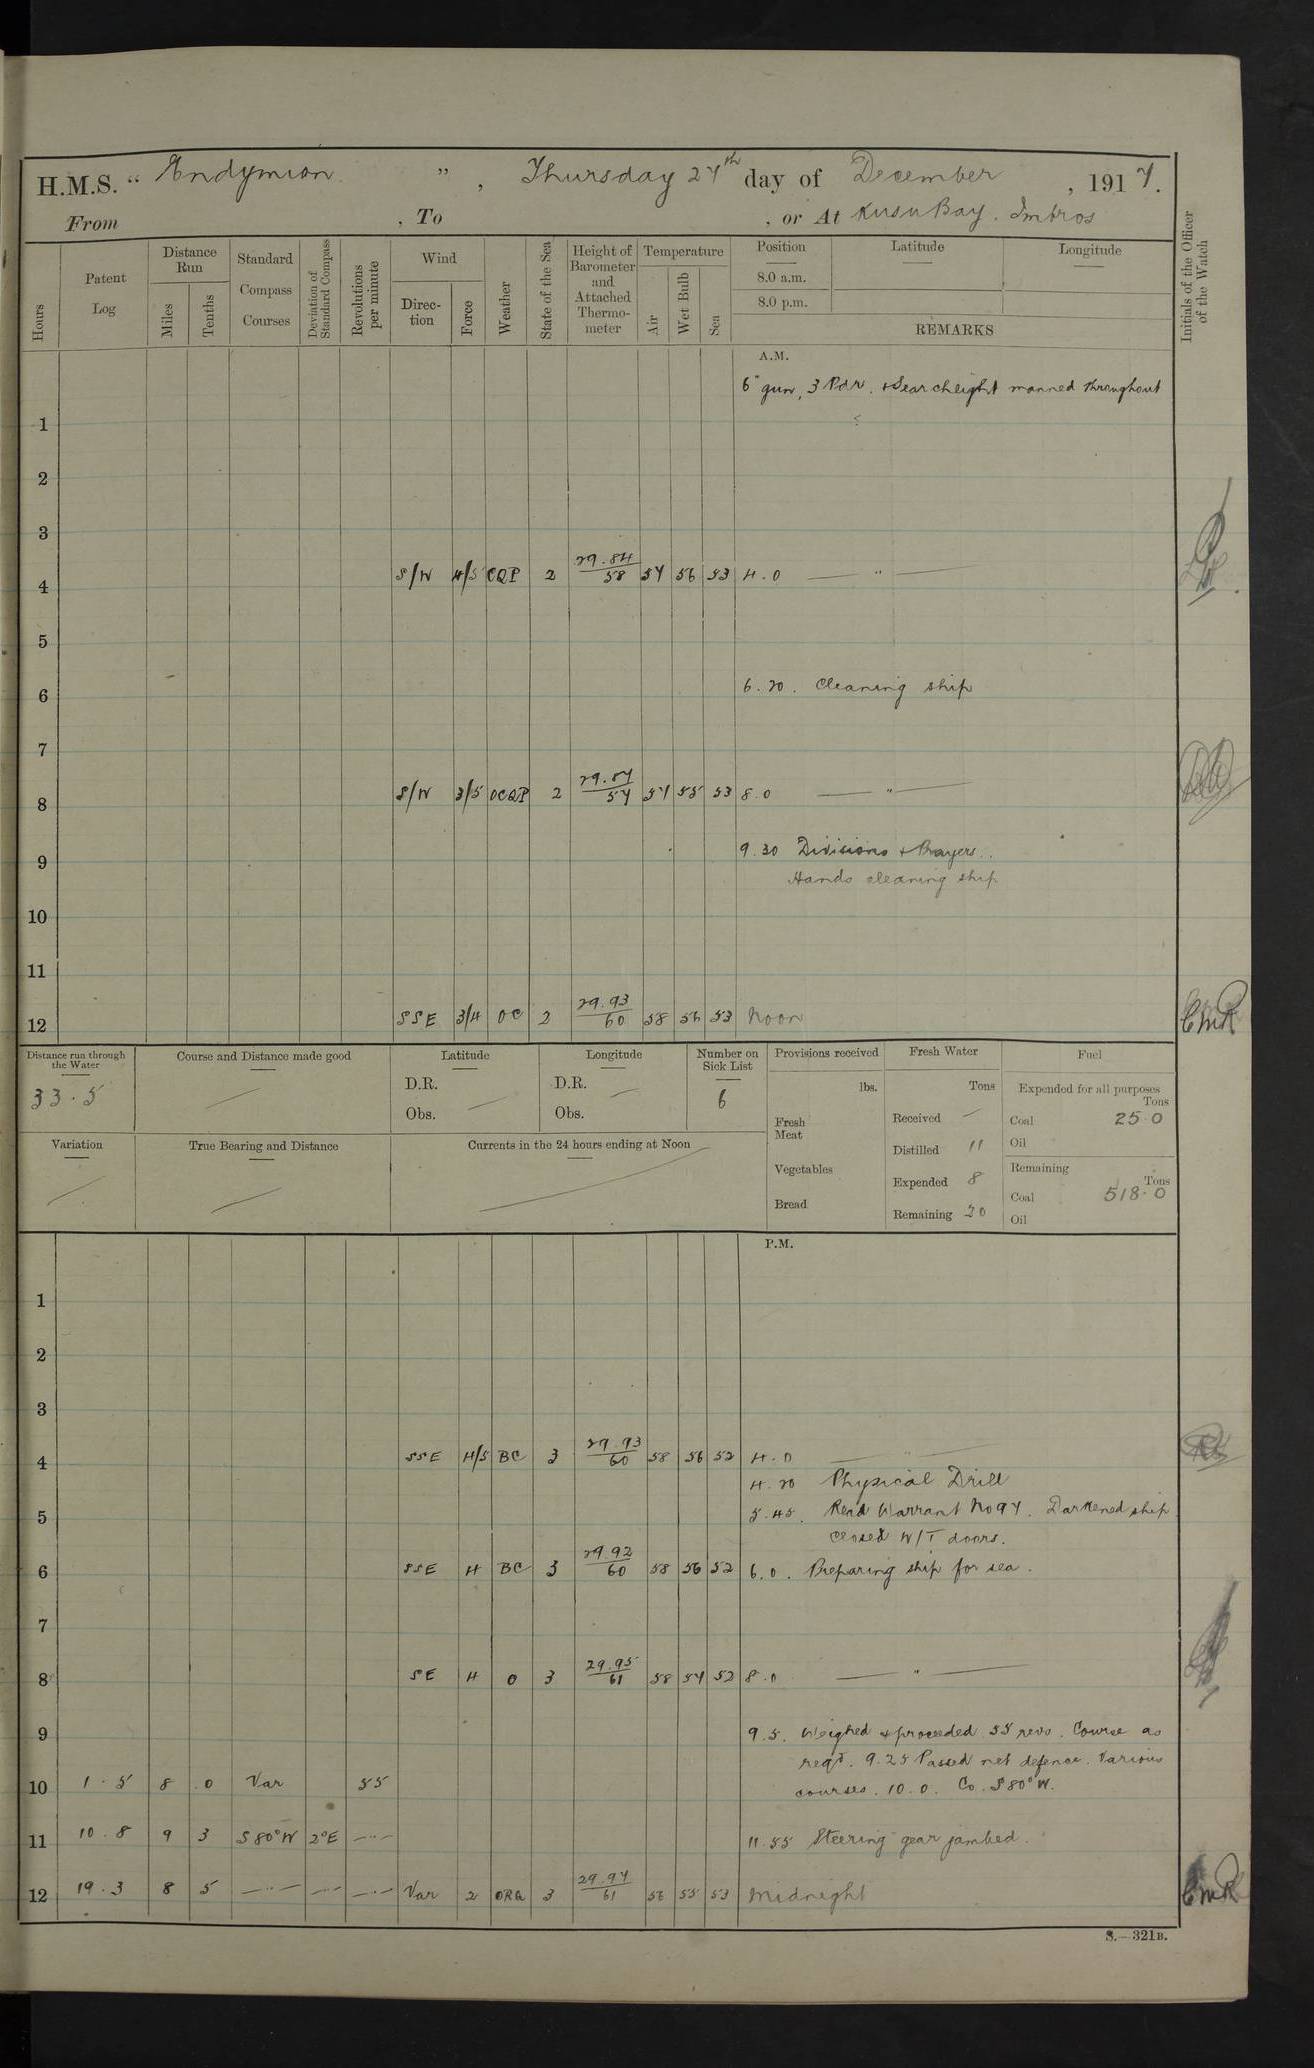 H.M.S. " Endymion ", Thursday 27th day of December, 1917.
From , To , or At Kusu Bay. Imbros
Hours
Patent Log
Distance Run
Miles
Tenths
Standard Compass Courses
Deviation of Standard Compass
Revolutions per minute
Wind
Direction
Force
Weather
State of the Sea
Height of Barometer and Attached Thermometer
Temperature
Air
Wet Bulb
Sea
Position
8.0 a.m.
8.0 p.m.
Latitude
Longitude
REMARKS
Initials of the Officer of the Watch
A.M.
6" gun, 3 Pdr. + Searchlight manned throughout
1
2
3
4 S/W 4/5 CQP 2 29.84/58 57 56 53 4.0 — " —
5
6 6.20. Cleaning ship
7
8 S/W 3/5 OCQP 2 29.87/57 57 55 53 8.0 — " —
9 9.30 Divisions + Prayers.
Hands cleaning ship
10
11
12 SSE 3/4 OC 2 29.93/60 58 56 53 Noon CMR
Distance run through the Water
33.5
Course and Distance made good
Latitude
D.R.
Obs.
Longitude
D.R.
Obs.
Number on Sick List
6
Variation
True Bearing and Distance
Currents in the 24 hours ending at Noon
Provisions received
lbs.
Fresh Meat
Vegetables
Bread
Fresh Water
Tons
Received —
Distilled 11
Expended 8
Remaining 20
Fuel
Expended for all purposes
Tons
Coal 25.0
Oil
Remaining
Tons
Coal 518.0
Oil
P.M.
1
2
3
4 SSE 4/5 BC 3 29.93/60 58 56 52 4.0 — " —
4.20 Physical Drill
5 5.45. Read Warrant No 97. Darkened ship
closed W/T doors.
6 SSE 4 BC 3 29.92/60 58 56 52 6.0. Preparing ship for sea.
7
8 SE 4 O 3 29.95/61 58 57 52 8.0 — " —
9 9.5. Weighed + proceeded 55 revs. Course as
reqd. 9.25 Passed net defence. Various
10 1.5 8 .0 Var 55 courses. 10.0. Co. S80°W.
11 10.8 9 3 S80°W 2°E — " — 11.55 Steering gear jambed.
12 19.3 8 5 — " — — " — — " — Var 2 ORQ 3 29.97/61 56 55 53 Midnight CMR
S.—321B.